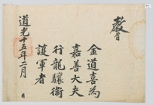 敎旨
金道喜爲
嘉善大夫
行龍驤衛
護軍者
道光十五年二月